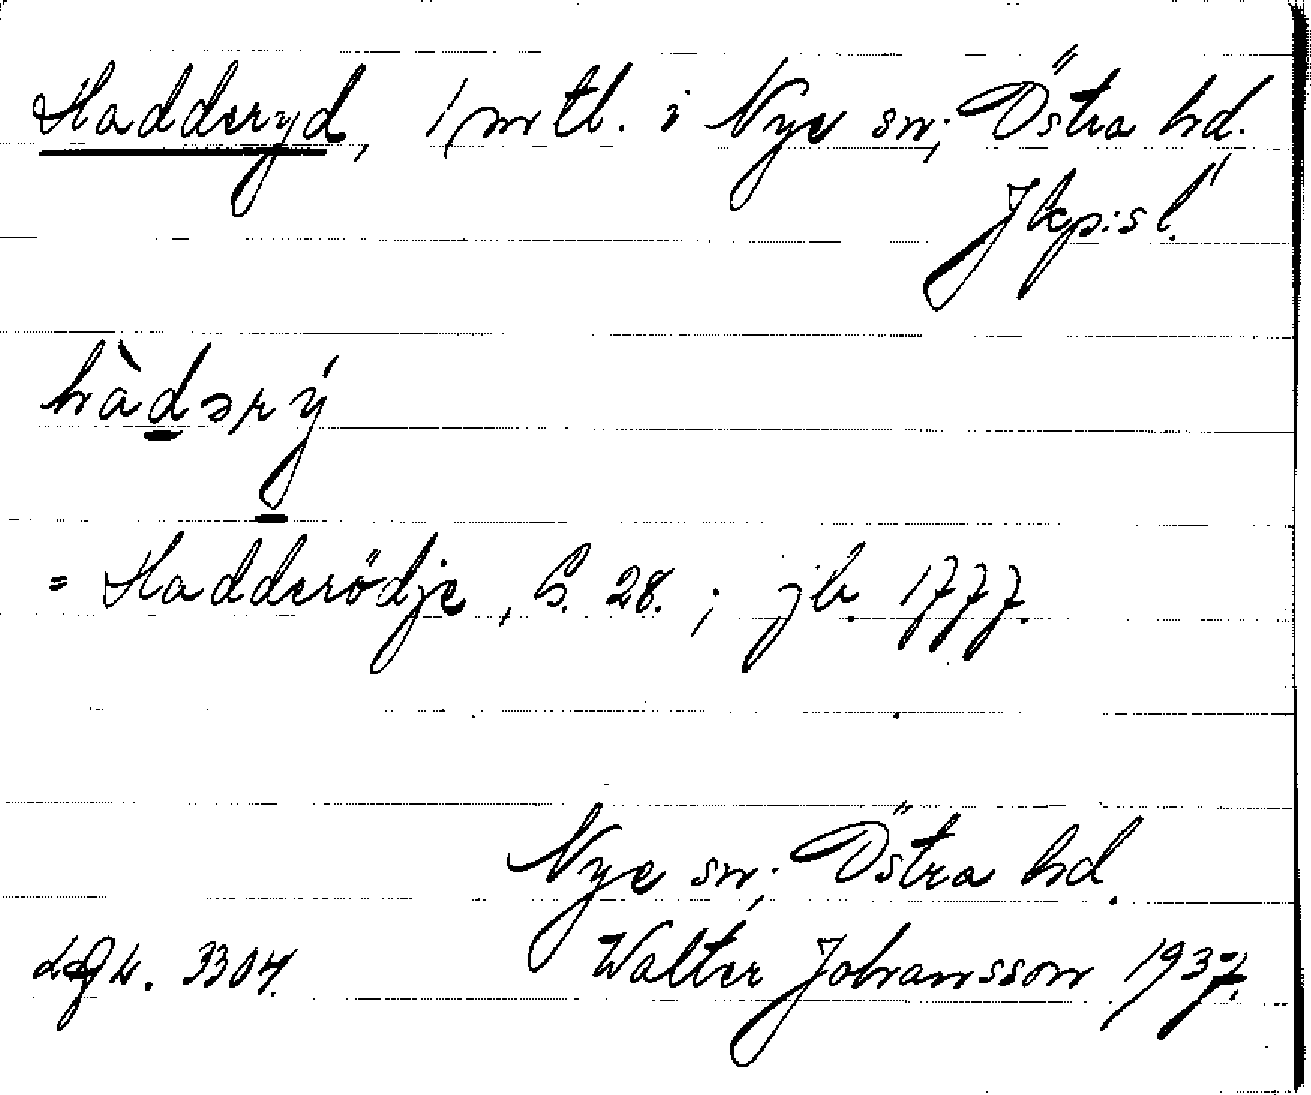 Hadderyd, 1 mtl. i Nye sn; Östra hd.
Jkp:s l.
hàdərý
= Hadderödje, S. 28. ; jb. 1777.
Nye sn; Östra hd.
3304. Walter Johansson 1937.